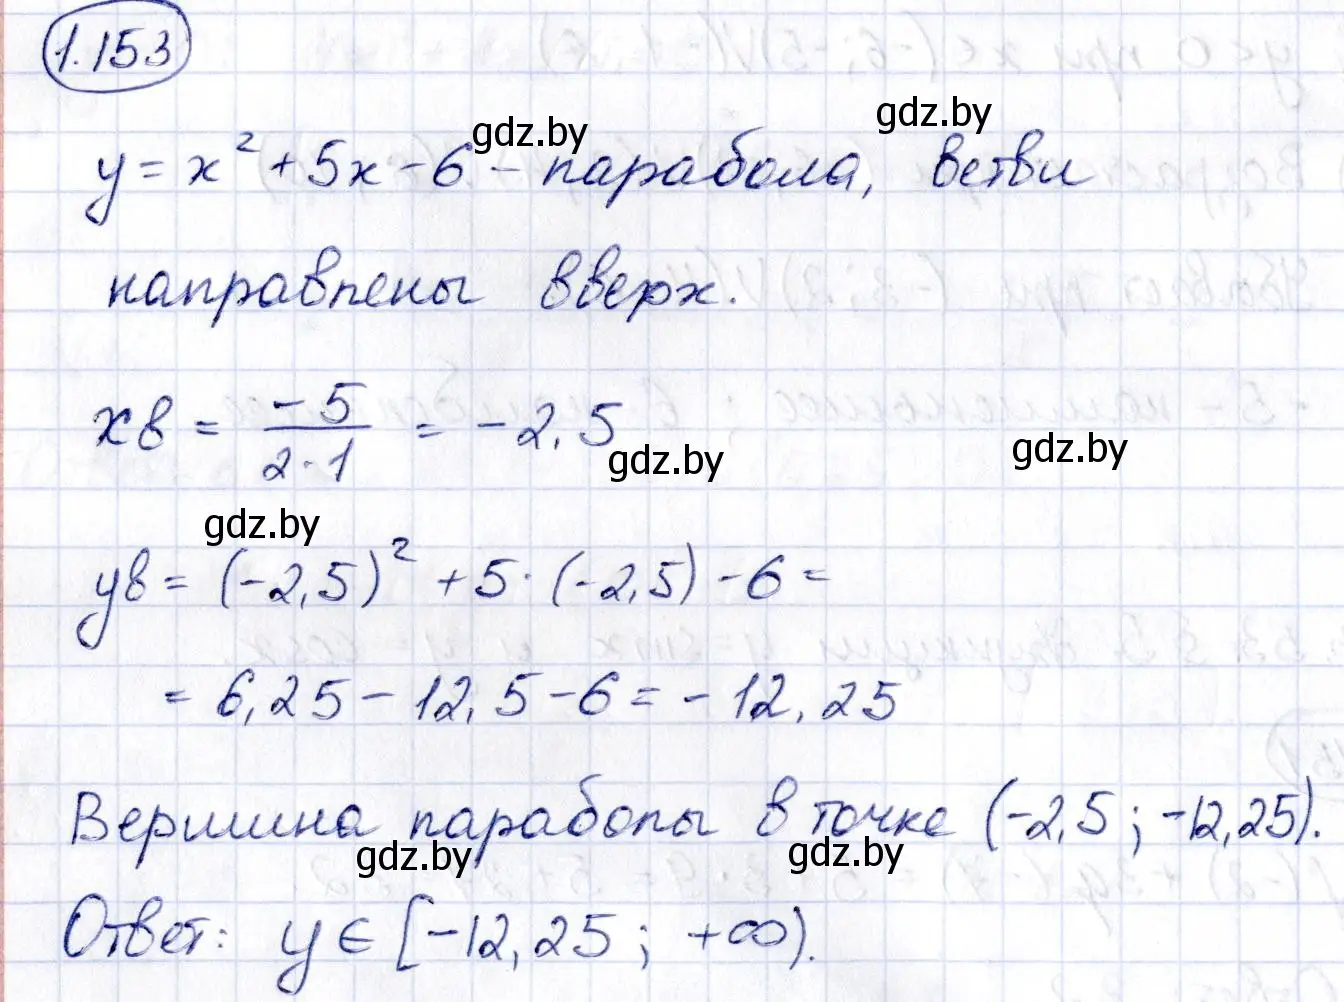 1.153
y = x² + 5x - 6 - парабола, ветви
направлены вверх.
xв = -5/(2·1) = -2,5
yв = (-2,5)² + 5·(-2,5) - 6 =
= 6,25 - 12,5 - 6 = -12,25
Вершина параболы в точке (-2,5; -12,25).
Ответ: y ∈ [-12,25; +∞).
gdz.by
gdz.by
gdz.by
gdz.by
gdz.by
gdz.by
gdz.by